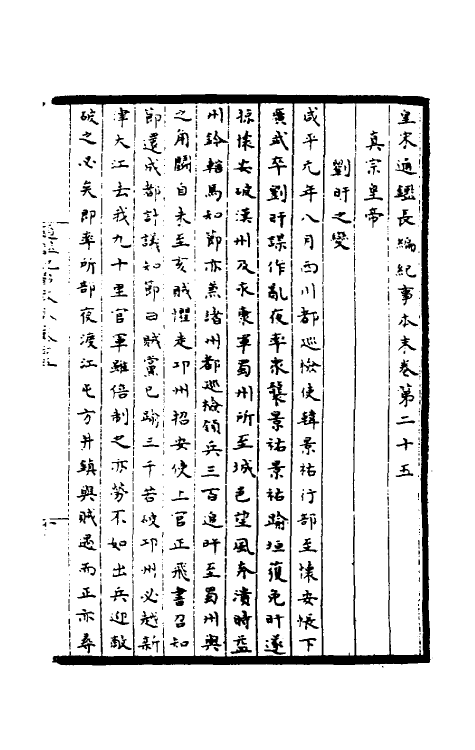 皇宋通鑑長編紀事本末卷第二十五
真宗皇帝
劉旰之變
咸平元年八月西川都巡檢使韓景祐行部至懷安帳下
廣武卒劉旰謀作亂夜率衆襲景祐景祐踰垣獲免旰遂
掠懷安破漢州及永康軍蜀州所至城邑望風奔潰時益
州鈐轄馬知節亦兼諸州都巡檢領兵三百追旰至蜀州與
之角鬬自未至亥賊懼走邛州招安使上官正飛書召知
節還成都計議知節曰賊黨已踰三千若破邛州必越新
津大江去我九十里官軍雖倍制之亦勞不如出兵迎敵
破之必矣即率所部夜渡江屯方井鎮與賊遇而正亦尋